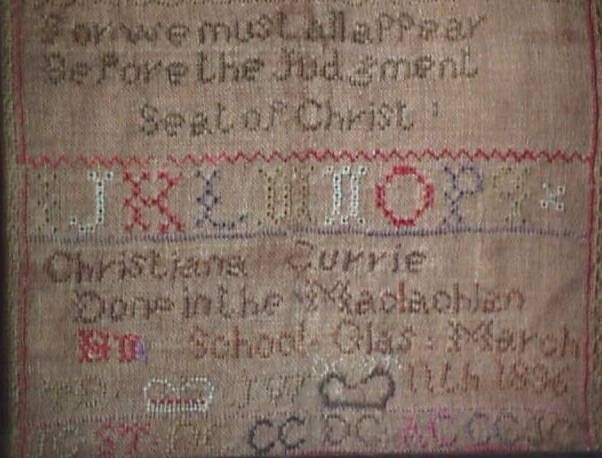 For we must All appear
Before the Judgment
Seat of Christ
I J K L M N O P Q
Christiana Currie
Done in the Maclachlan
School. Glas: March
11th 1836
JW
ST CC DC AC CC JC